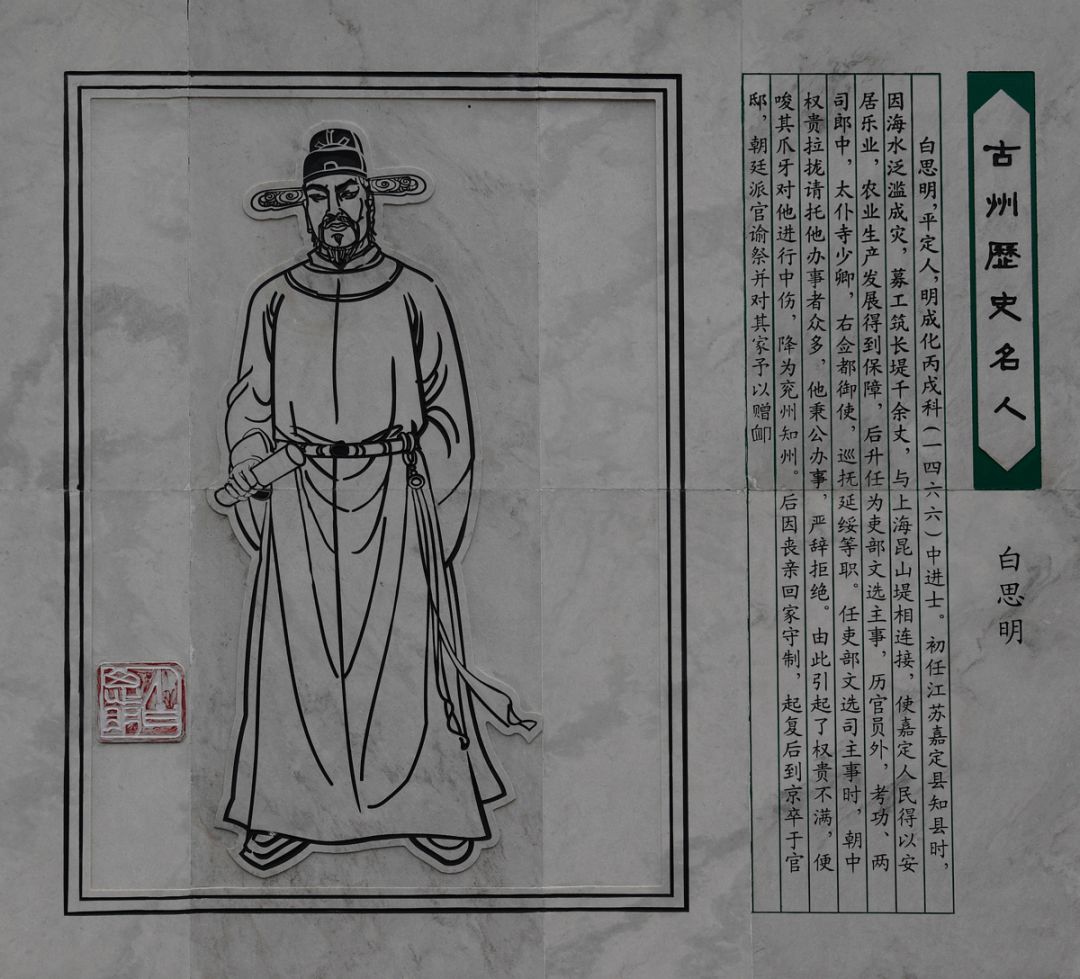 古州歷史名人
白思明
白思明,平定人,明成化丙戌科(一四六六)中进士。初任江苏嘉定县知县时,
因海水泛滥成灾,募工筑长堤千余丈,与上海昆山堤相连接,使嘉定人民得以安
居乐业,农业生产发展得到保障,后升任为吏部文选主事,历官员外,考功、两
司郎中,太仆寺少卿,右佥都御使,巡抚延绥等职。任吏部文选司主事时,朝中
权贵拉拢请托他办事者众多,他秉公办事,严辞拒绝。由此引起了权贵不满,便
唆其爪牙对他进行中伤,降为兖州知州。后因丧亲回家守制,起复后到京卒于官
邸,朝廷派官谕祭并对其家予以赠卹